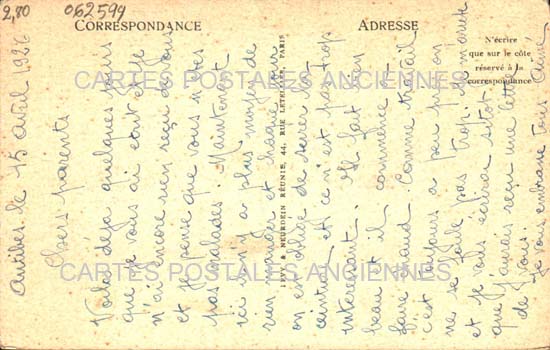 2,80
062599
CORRESPONDANCE
ADRESSE
N'écrire
que sur le côté
réservé à la
correspondance
CARTES POSTALES ANCIENNES
CARTES POSTALES ANCIENNES
LEVY & NEURDEIN RÉUNIS, 44, RUE LETELLIER, PARIS
Antibes le 15 avril 1926
Chers parents
Voila deja quelques jours
que je vous ai écrit et je
n'ai encore rien reçu de vous
et je pense que vous n'etes
pas malades. Maintenant
ici il n'y a plus moyen de
rien manger et chaque jour
on est obligé de serrer la
ceinture et ce n'est pas trop
interessant. Il fait bien
beau et il commence à
faire chaud. Comme travail
c'est toujours a peu près on
ne se foule pas trop. Je
et je vous écrirai sitot
que j'aurais reçu une lettre
de vous.
Je vous embrasse tous